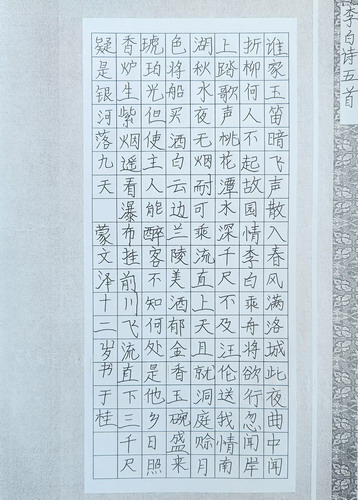 李白诗五首
谁家玉笛暗飞声散入春风满洛城此夜曲中闻
折柳何人不起故国情李白乘舟将欲行忽闻岸
上踏歌声桃花潭水深千尺不及汪伦送我情南
湖秋水夜无烟耐可乘流直上天且就洞庭赊月
色将船买酒白云边兰陵美酒郁金香玉碗盛来
琥珀光但使主人能醉客不知何处是他乡日照
香炉生紫烟遥看瀑布挂前川飞流直下三千尺
疑是银河落九天 蒙文泽十二岁书于桂